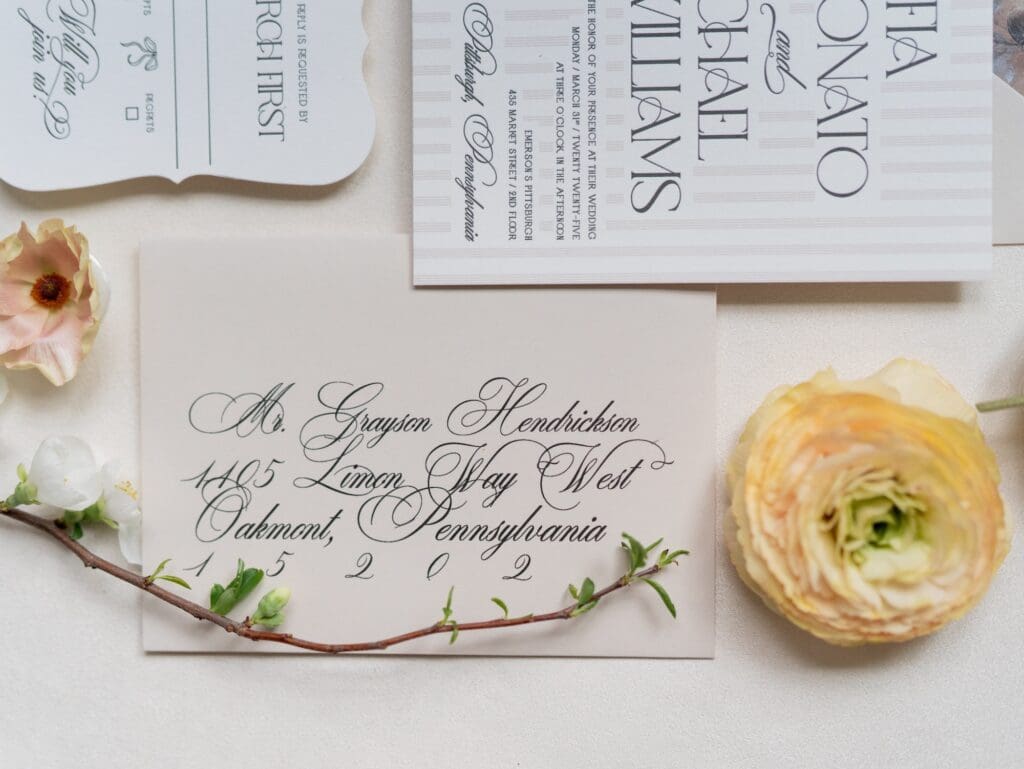 Will you
join us?
REGRETS
REPLY IS REQUESTED BY
RCH FIRST
FIA
ONATO
and
CHAEL
WILLIAMS
THE HONOR OF YOUR PRESENCE AT THEIR WEDDING
MONDAY / MARCH 31ST / TWENTY TWENTY-FIVE
AT THREE O'CLOCK IN THE AFTERNOON
EMERSON'S PITTSBURGH
435 MARKET STREET / 2ND FLOOR
Pittsburgh, Pennsylvania
Mr. Grayson Hendrickson
1405 Limon Way West
Oakmont, Pennsylvania
15202